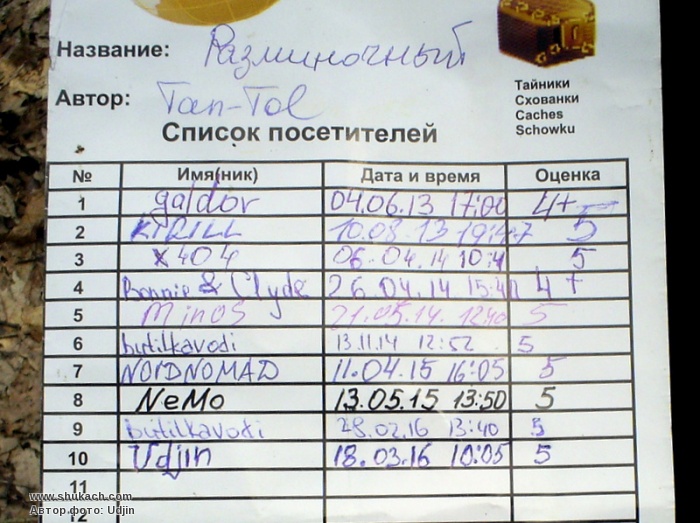 Название: Разминочный
Автор: Tan-Tol
Тайники
Схованки
Caches
Schowku
Список посетителей
№ Имя(ник) Дата и время Оценка
1 galdor 04.06.13 17:00 4+
2 KIRILL 10.08.13 19:47 5
3 x404 06.04.14 5
4 Bonnie & Clyde 26.04.14 4+
5 Minos 21.05.14. 12:40 5
6 butilkavodi 13.11.14 12:52 5
7 NORDNOMAD 11.04.15 16:05 5
8 NeMo 13.05.15 13:50 5
9 butilkavodi 28.02.16 13:40 5
10 Udjin 18.03.16 10:05 5
11
12
www.shukach.com
Автор фото: Udjin